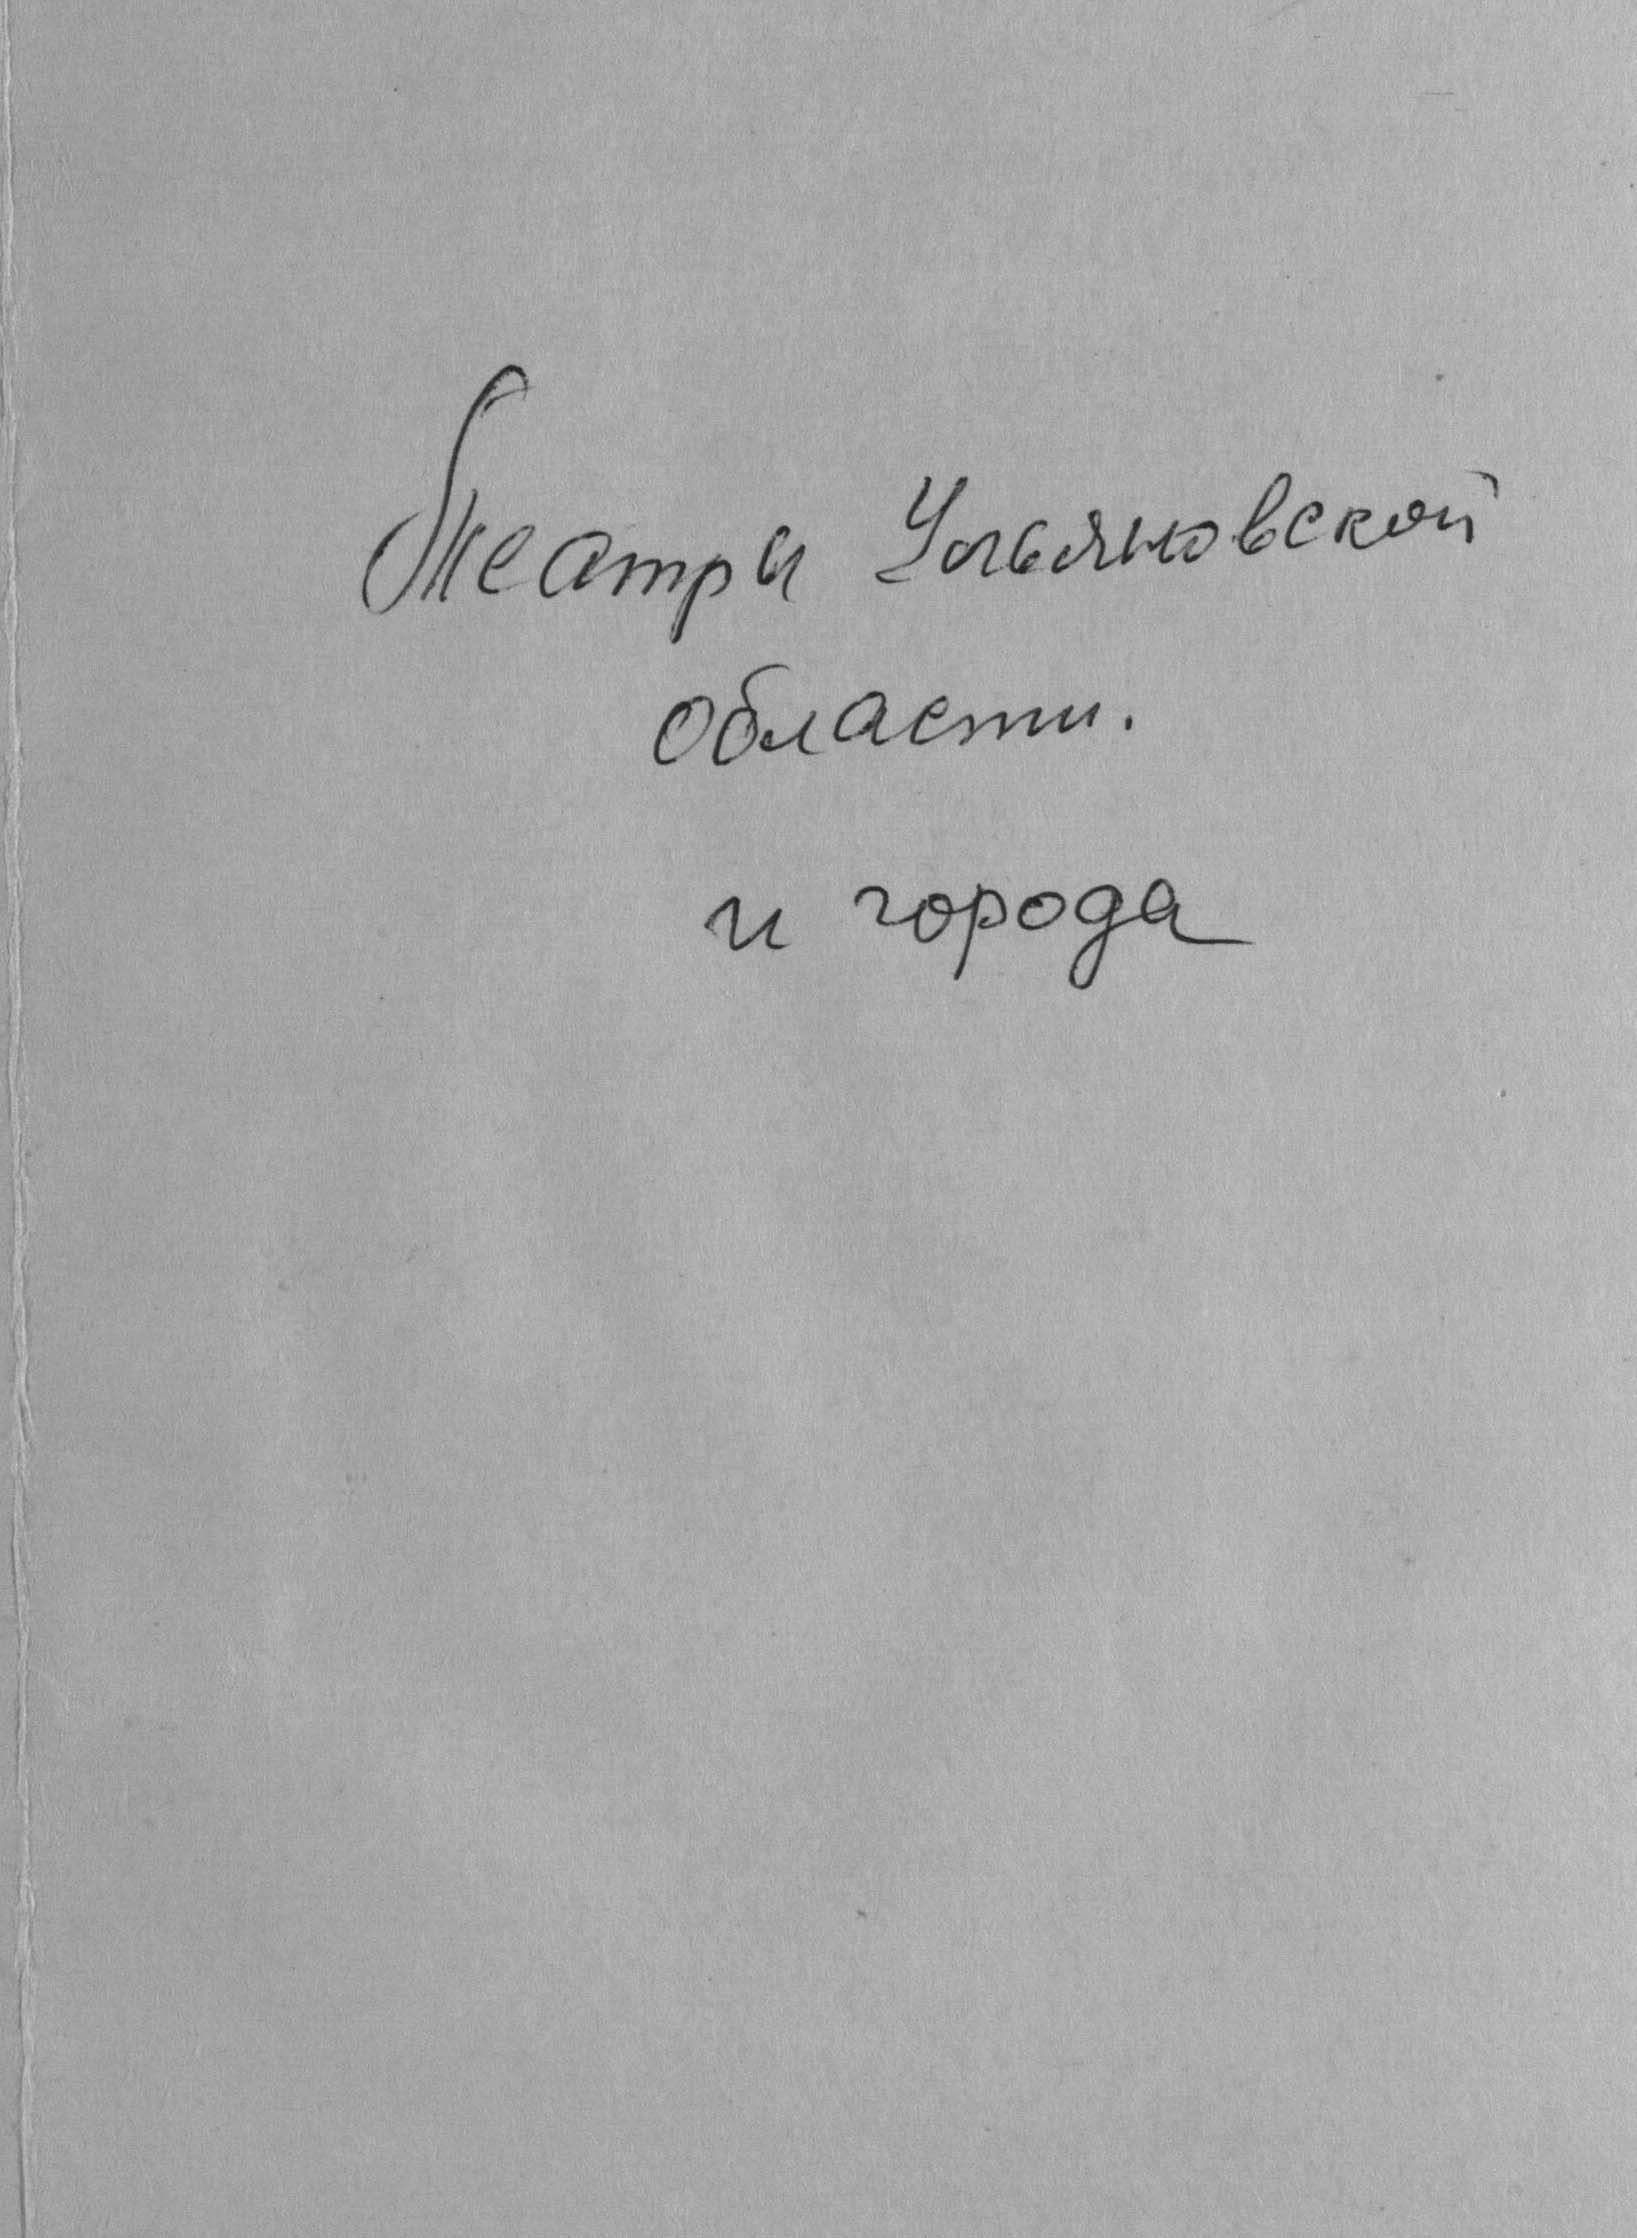 Театры Ульяновской
области.
и города